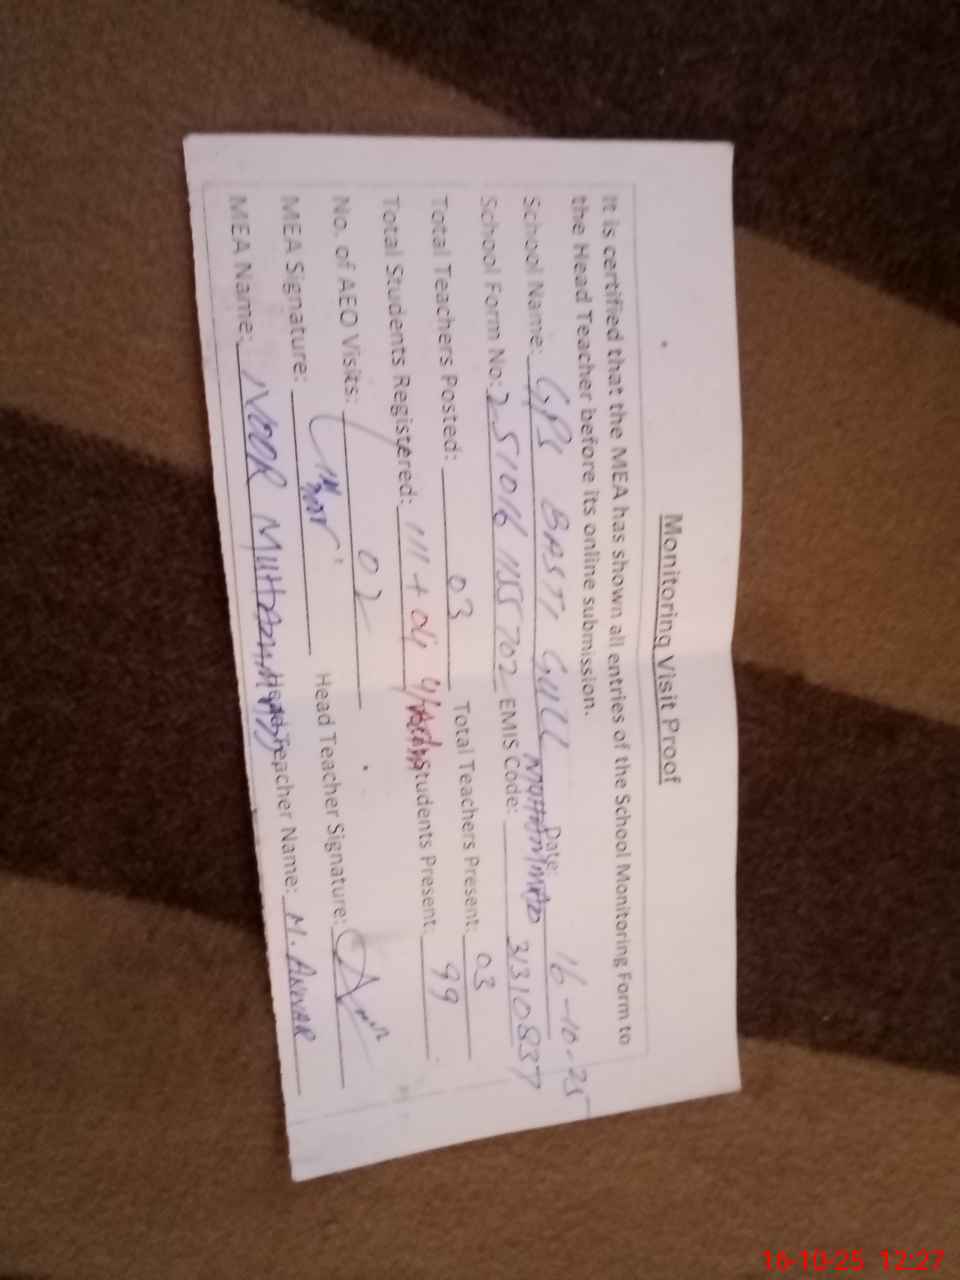 Monitoring Visit Proof
It is certified that the MEA has shown all entries of the School Monitoring Form to
the Head Teacher before its online submission.
School Name: GPS BASTI GULL MUHAMMAD Date: 16-10-25
School Form No: 2510161155702 EMIS Code: 31310837
Total Teachers Posted: 03 Total Teachers Present: 03
Total Students Registered: 111 + 04 Students Present: 99
No. of AEO Visits: 02
MEA Signature: Head Teacher Signature:
MEA Name: NOOR MUHAMMAD Head Teacher Name: M. ANWAR
16-10-25 12:27